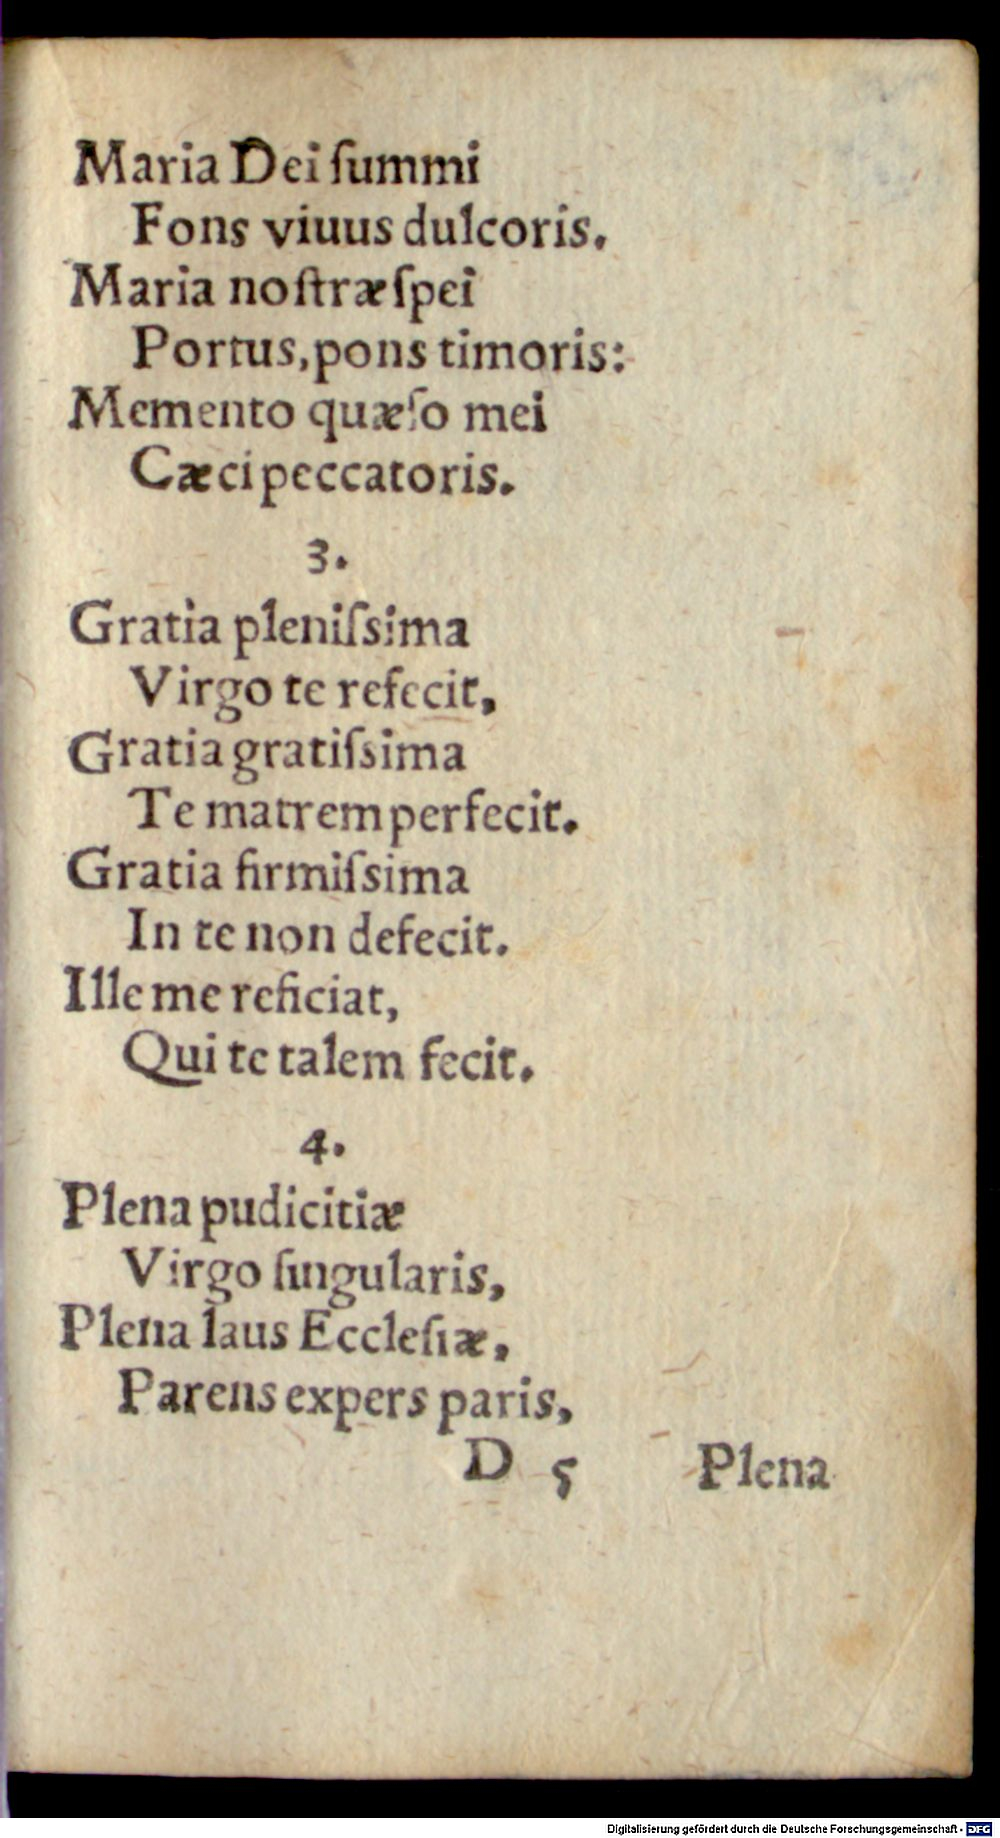 Maria Dei ſummi
Fons viuus dulcoris.
Maria noſtræ ſpei
Portus, pons timoris:
Memento quæſo mei
Cæci peccatoris.
3.
Gratia pleniſsima
Virgo te refecit,
Gratia gratiſsima
Te matrem perfecit.
Gratia firmiſsima
In te non defecit.
Ille me reficiat,
Qui te talem fecit.
4.
Plena pudicitiæ
Virgo ſingularis,
Plena laus Eccleſiæ,
Parens expers paris,
D 5 Plena
Digitalisierung gefördert durch die Deutsche Forschungsgemeinschaft - DFG